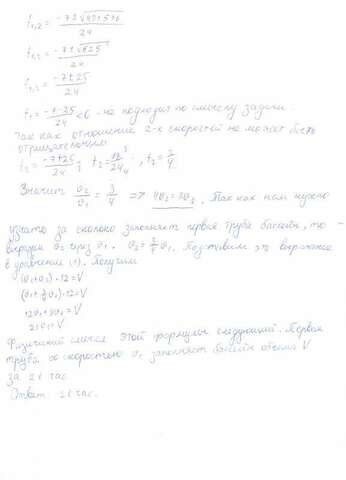 t₁,₂ = (-7±√(49+576))/24
t₁,₂ = (-7±√625)/24
t₁,₂ = (-7±25)/24
t₁ = (-7-25)/24 < 0 - не подходит по смыслу задачи.
Так как отношение 2-х скоростей не может быть
отрицательным
t₂ = (-7+25)/24 ; t₂ = 18³/24₄ , t₂ = 3/4
Значит υ₂/υ₁ = 3/4 => 4υ₂ = 3υ₁. Так как нам нужно
узнать за сколько заполняет первая труба басейн, то -
выразим υ₂ через υ₁. υ₂ = 3/4 υ₁. Подставим это выражение
в уравнение (1). Получим
(υ₁+υ₂)·12=V
(υ₁+3/4υ₁)·12=V
12υ₁+9υ₁=V
21υ₁=V
Физический смысл этой формулы следующий. Первая
труба со скоростью υ₁ заполняет басейн объема V
за 21 час
Ответ: 21 час.